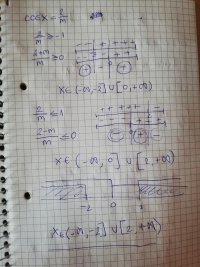 cosx = 2/m
2/m ≥ -1
2+m/m ≥ 0
x∈(-∞,-2]∪[0,+∞)
2/m ≤ 1
2-m/m ≤ 0
x∈(-∞,0]∪[2,+∞)
-2 0 2
x∈(-∞,-2]∪[2,+∞)